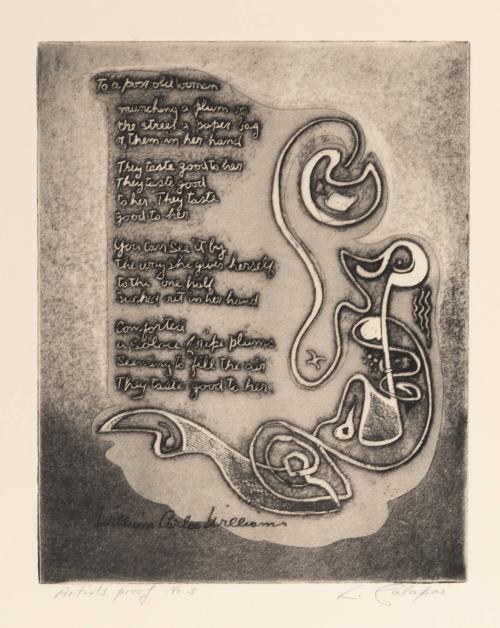 To a poor old woman
munching a plum on
the street a paper bag
of them in her hand
They taste good to her
They taste good
to her. They taste
good to her
You can see it by
the way she gives herself
to the one half
sucked out in her hand
Comforted
a solace of ripe plums
seeming to fill the air
They taste good to her.
William Carlos Williams
Artists proof No. 3
L. Calapai